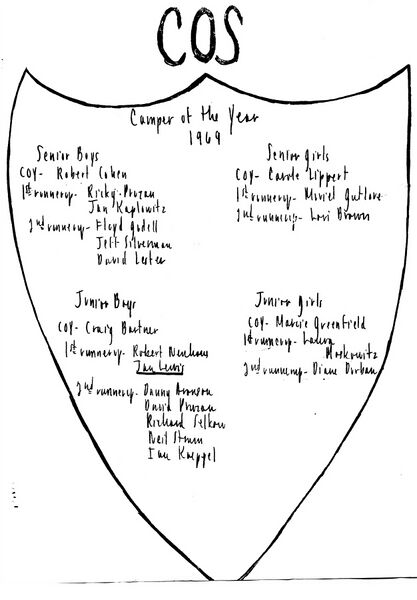 COS
Camper of the Year
1969
Senior Boys
COY- Robert Cohen
1st runnerup- Ricky Pruzan
Jan Kaplowitz
2nd runnerup- Floyd Godell
Jeff Silverman
David Lester
Senior girls
COY- Carole Lippert
1st runnerup- Muriel Gutlove
2nd runnerup- Lori Brown
Junior Boys
COY- Craig Bartner
1st runnerup- Robert
Ian Lewis
2nd runnerup- Danny Aronson
David Pruzan
Richard Selkow
Neil
Ian Kaeppel
Junior girls
COY- Marcie Greenfield
1st runnerup- Laura
Moskowitz
2nd runnerup- Diane Dorban